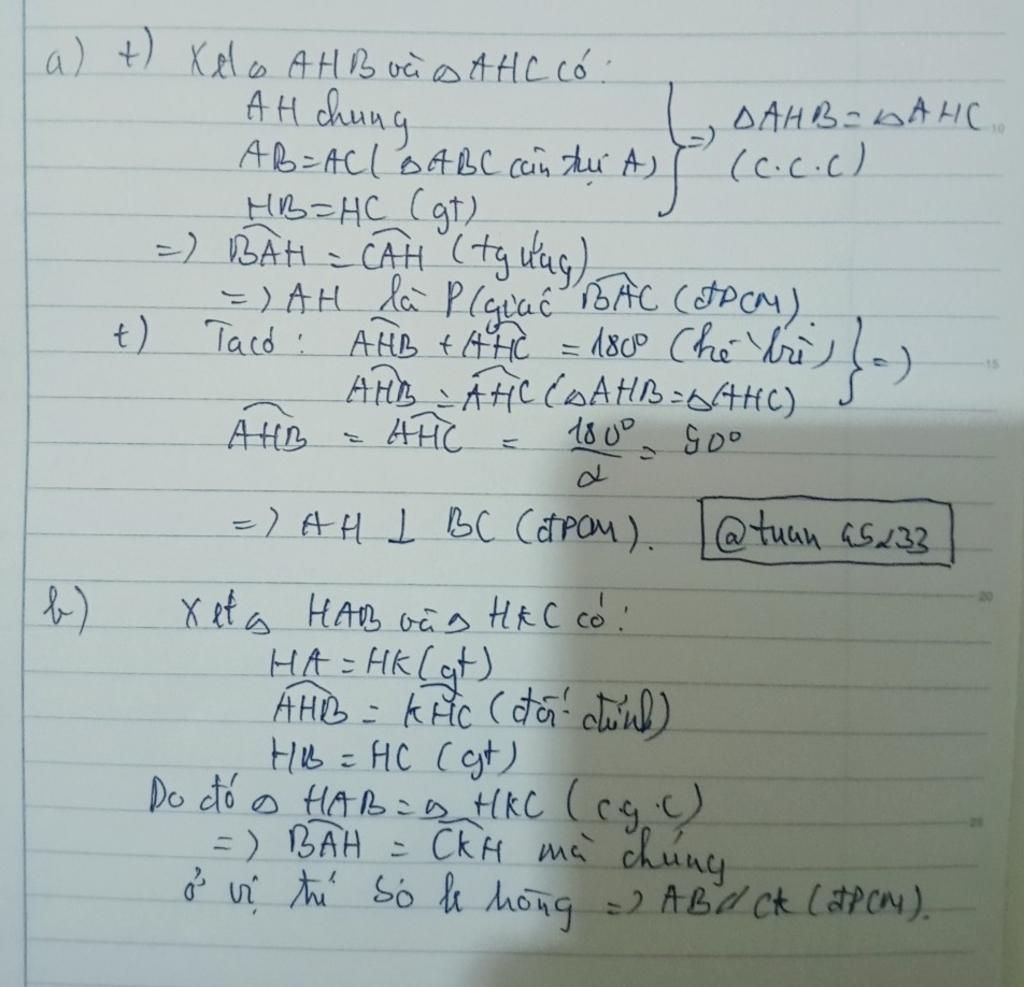 a) +) Xét △ AHB và △ AHC có:
AH chung
AB = AC ( △ ABC cân tại A)
HB = HC (gt)
} => △AHB = △AHC
(c.c.c)
=> \widehat{BAH} = \widehat{CAH} (tg ứng)
=> AH là p/giác \widehat{BAC} (đPCM).
+) Ta có: \widehat{AHB} + \widehat{AHC} = 180° (kề bù) } =>
\widehat{AHB} = \widehat{AHC} (△AHB = △AHC)
\widehat{AHB} = \widehat{AHC} = \frac{180°}{2} = 90°
=> AH ⊥ BC (đPCM). @tuan
b) Xét △ HAB và △ HKC có:
HA = HK (gt)
\widehat{AHB} = \widehat{KHC} (đối đỉnh)
HB = HC (gt)
Do đó △ HAB = △ HKC (c.g.c)
=> \widehat{BAH} = \widehat{CKH} mà chúng
ở vị trí so le trong => AB // CK (đPCM).
10
15
20
25